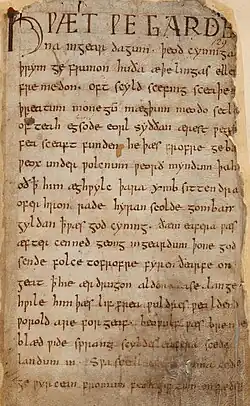 HǷÆT ǷE GARDE
na ingear dagum. þeod cyninga
þrym ge frunon huða æþelingas elle
fre medon. oft scyld scefing sceaþe
þreatum monegū mægþum meodo setla
of teah egsode eorl syððan ærest ƿear
fea sceaft funden he þæs frofre geba
ƿeox under ƿolcnum ƿeorð myndum þah
oð þ him æghƿylc þara ymb sittendra
ofer hron rade hyran scolde gomban
gyldan þ ƿæs god cyning. ðæm eafera ƿæs
æfter cenned geong ingeardum þone god
sende folce tofrofre fyren ðearfe on
geat þ hie ær drugon aldor ase. lange
hƿile him þæs lif frea ƿuldres ƿealdend
ƿorold are for geaf. beoƿulf ƿæs breme
blæd ƿide sprang scyldes eafera scede
landum in. Sƿa sceal uma gode
ge ƿyrcean fromum feoh giftum on